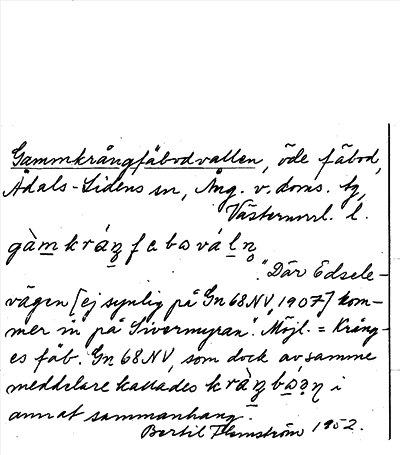 Gammkrångfäbodvallen, öde fäbod,
Ådals-Lidens sn, Ång. v. doms. tg,
Västernorrl. l.
gàm̲krán̲fabɷvál̲n̥
"Där Edsele-
vägen [ej synlig på Gn 68 NV, 1907] kom-
mer in på Sivermyran". Möjl. = Krång-
es fäb. Gn 68 NV, som dock av samme
meddelare kallades i
annat sammanhang.
Bertil Flemström 1952.